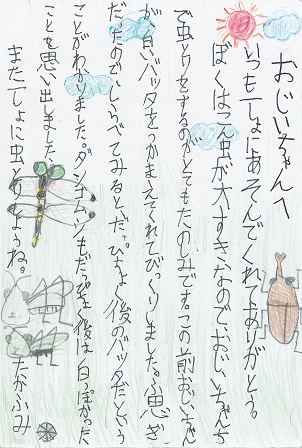 おじいちゃんへ
いつもいっしょにあそんでくれてありがとう。
ぼくはこん虫が大すきなのでおじいちゃんち
で虫とりをするのがとてもたのしみです。この前おじいちゃん
が、白いバッタをつかまえてくれてびっくりしました。ふ思ぎ
だったのでしらべてみるとだっぴちょく後のバッタだという
ことがわかりました。ダンゴムシもだっぴちょく後は白っぽかった
ことを思い出しました。
またいっしょに虫とりしようね。
たかふみ